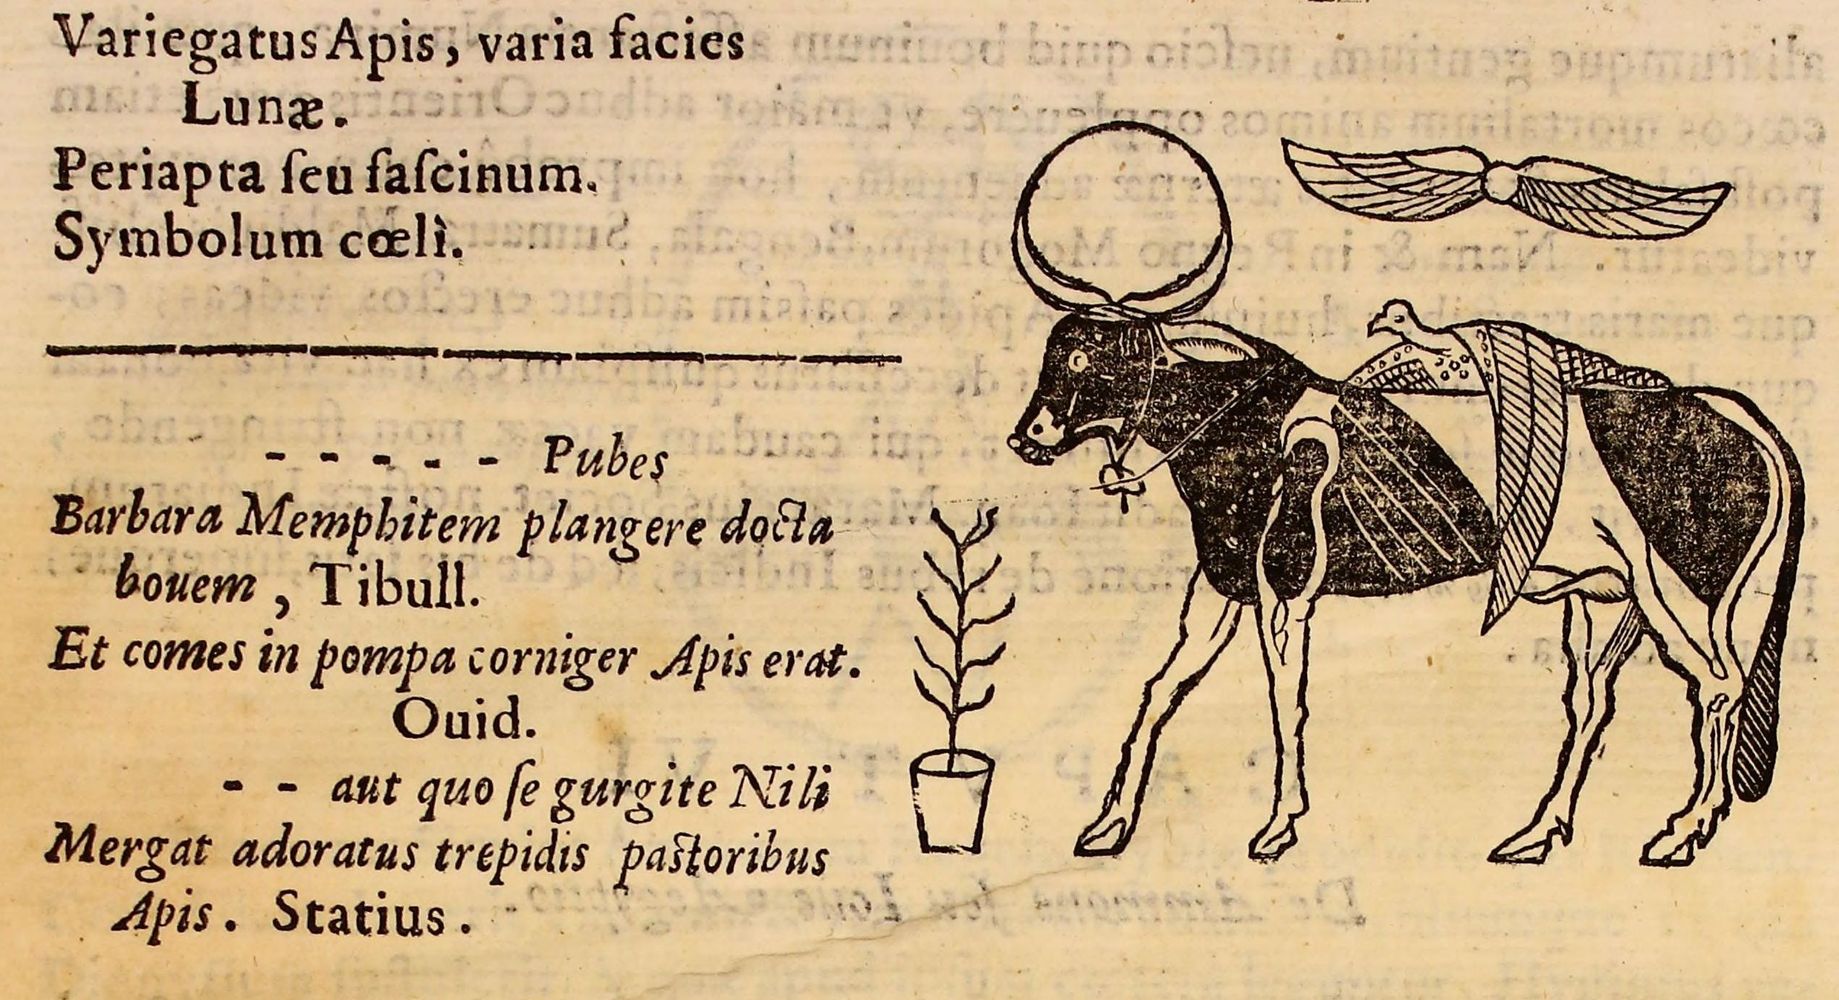 Variegatus Apis, varia facies
Lunæ.
Periapta ſeu faſcinum.
Symbolum cœlì.
- - - - - Pubes
Barbara Memphitem plangere docta
bouem, Tibull.
Et comes in pompa corniger Apis erat.
Ouid.
- - aut quo ſe gurgite Nili
Mergat adoratus trepidis paſtoribus
Apis. Statius.